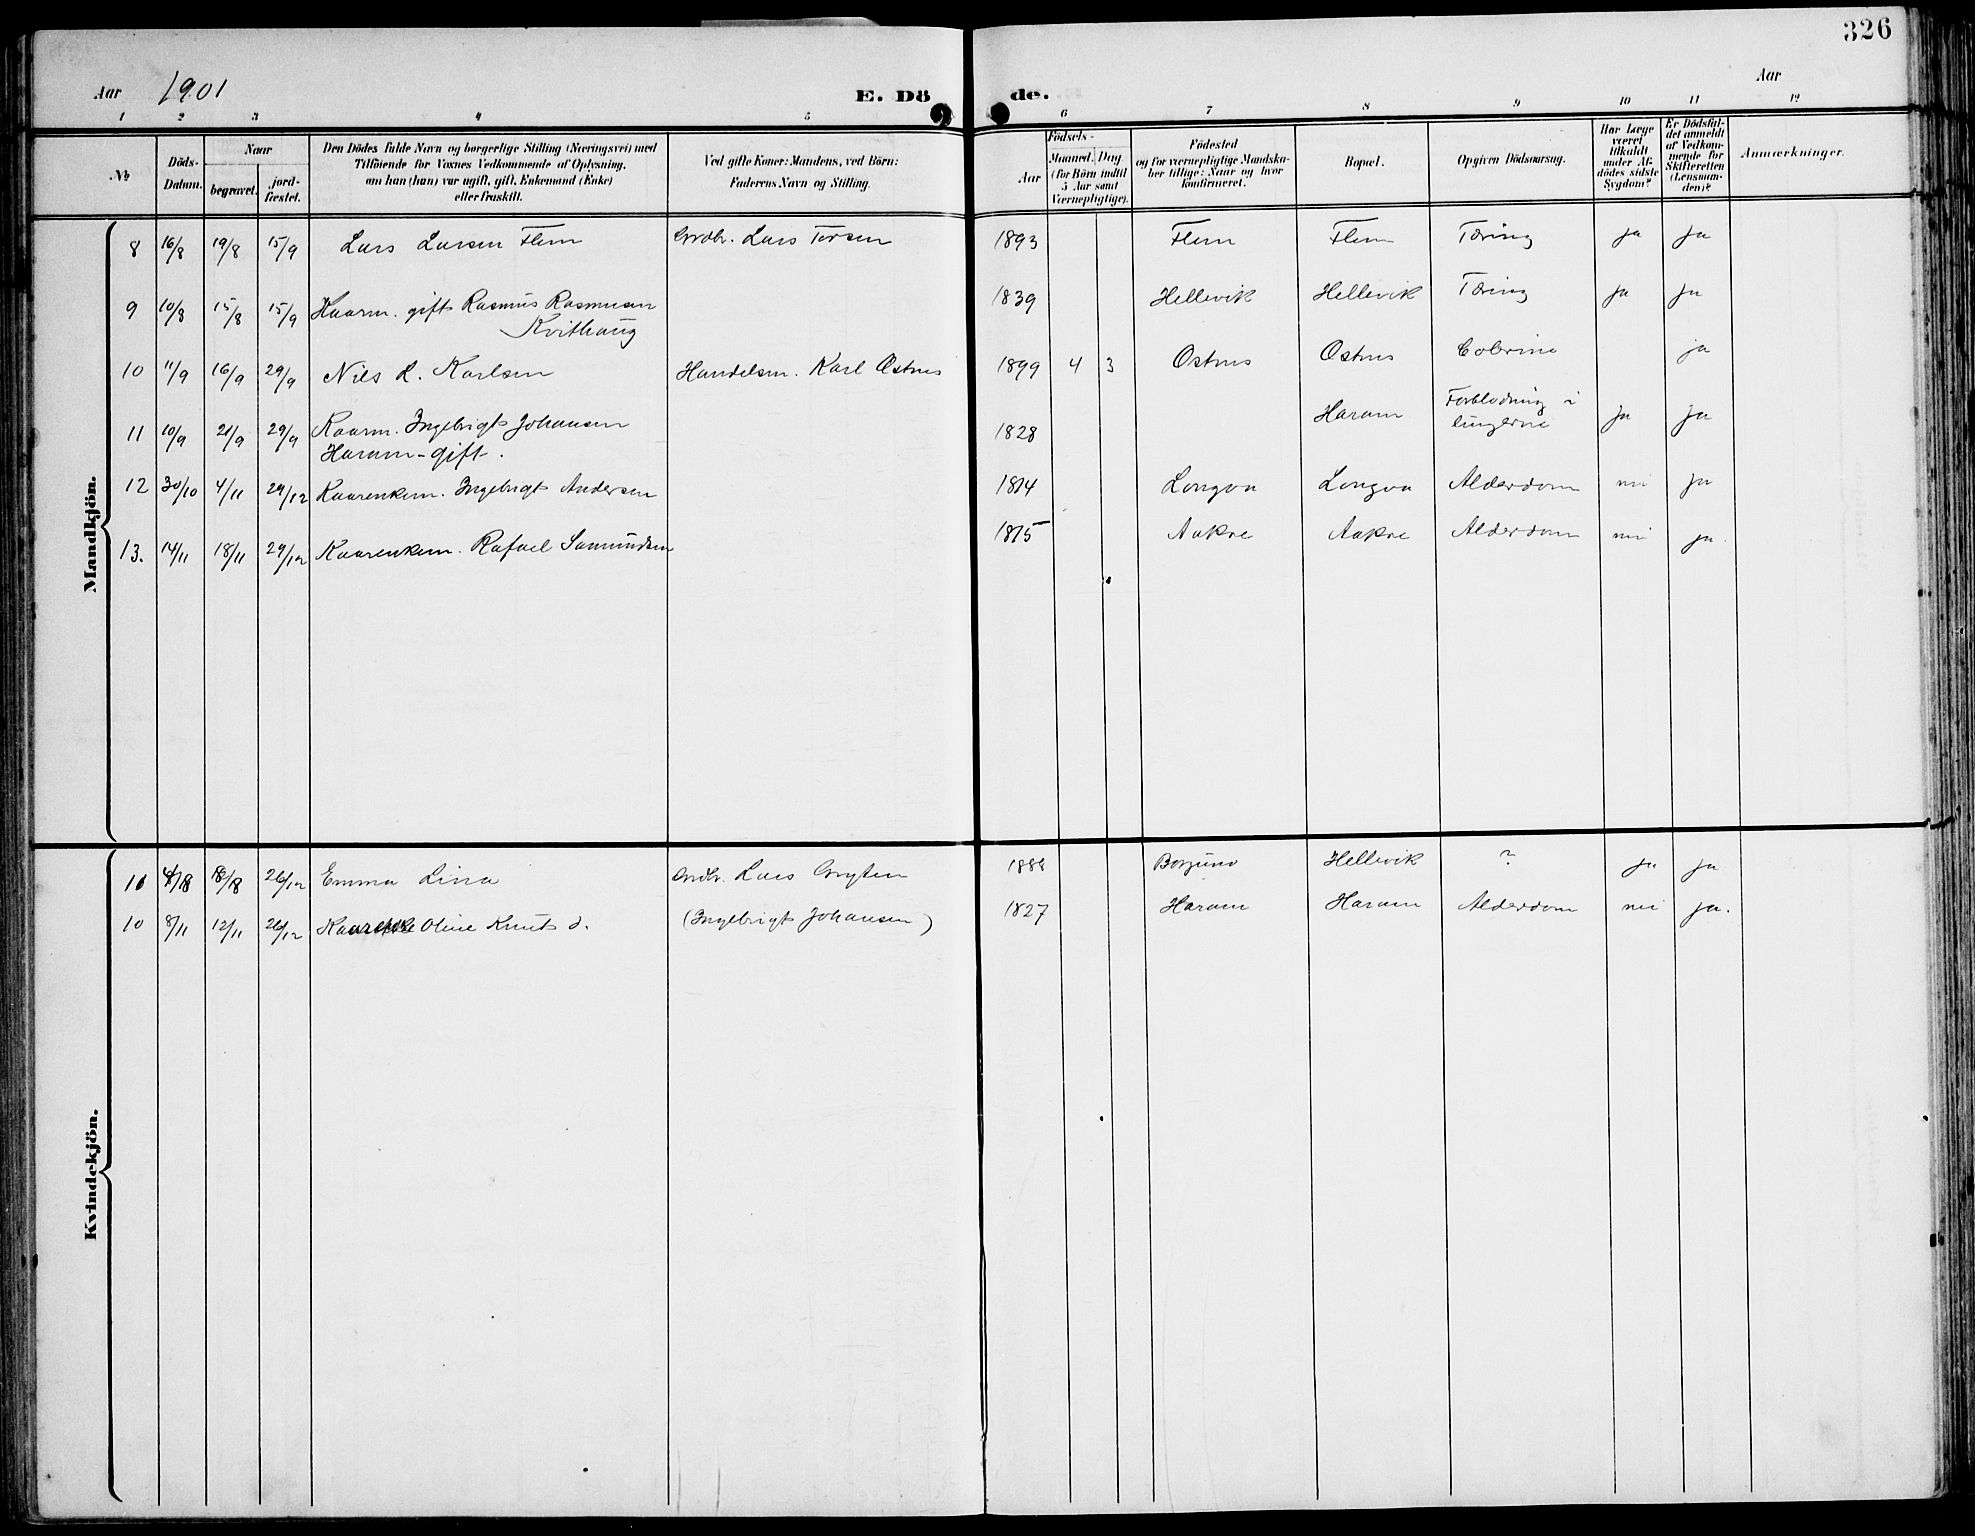 326
Aar 1901 E. Dö de. Aar
1 2 3 4 5 6 7 8 9 10 11 12
No.
Döds-Datum.
Naar
begravet.
jord-fæstet.
Den Dödes fulde Navn og borgerlige Stilling (Næringsvei) med
Tilföiende for Voxnes Vedkommende af Oplysning,
om han (hun) var ugift, gift, Enkemand (Enke)
eller fraskilt.
Ved gifte Koner: Mandens, ved Börn:
Faderens Navn og Stilling.
Födsels-
Aar
Maaned. Dag
(for Börn indtil
5 Aar samt
Værnepligtige).
Födested
og for værnepligtige Mandska-
ber tillige: Naar og hvor
konfirmeret.
Bopæl.
Opgiven Dödsaarsag.
Har Læge
været
tilkaldt
under Af-
dödes sidste
Sygdom?
Er Dödsfal-
det anmeldt
af Vedkom-
mende for
Skifteretten
(Lensman-
den)?
Anmærkninger.
Mandkjön.
8 16/8 19/8 15/9 Lars Larsen Flem Grdbr. Lars Torsen 1893 Flem Flem Tæring ja ja
9 10/8 15/8 15/9 Kaarm. gift Rasmus Rasmusen 1839 Hellevik Hellevik Tæring ja ja
Kvithaug
10 11/9 16/9 29/9 Nils K. Karlsen Handelsm. Karl Østnes 1899 4 3 Østnes Østnes Colerine ja
11 10/9 21/9 29/9 Kaarm. Ingebrigt Johansen 1828 Haram Forblødning i
Haram - gift. lungerne ja ja
12 30/10 4/11 29/12 Kaarenkem. Ingebrigt Andersen 1814 Longva Longva Alderdom nei ja
13. 14/11 18/11 29/12 Kaarenkem. Rafael Samundsen 1815 Aakre Aakre Alderdom nei ja.
Kvindekjön.
26/12 Emma Lina Grdbr. Lars Gryten 1888 Borgund Hellevik ? ja ja
10 8/11 12/11 26/12 Oline Knuts d. (Ingebrigt Johansen) 1827 Haram Haram Alderdom nei ja.